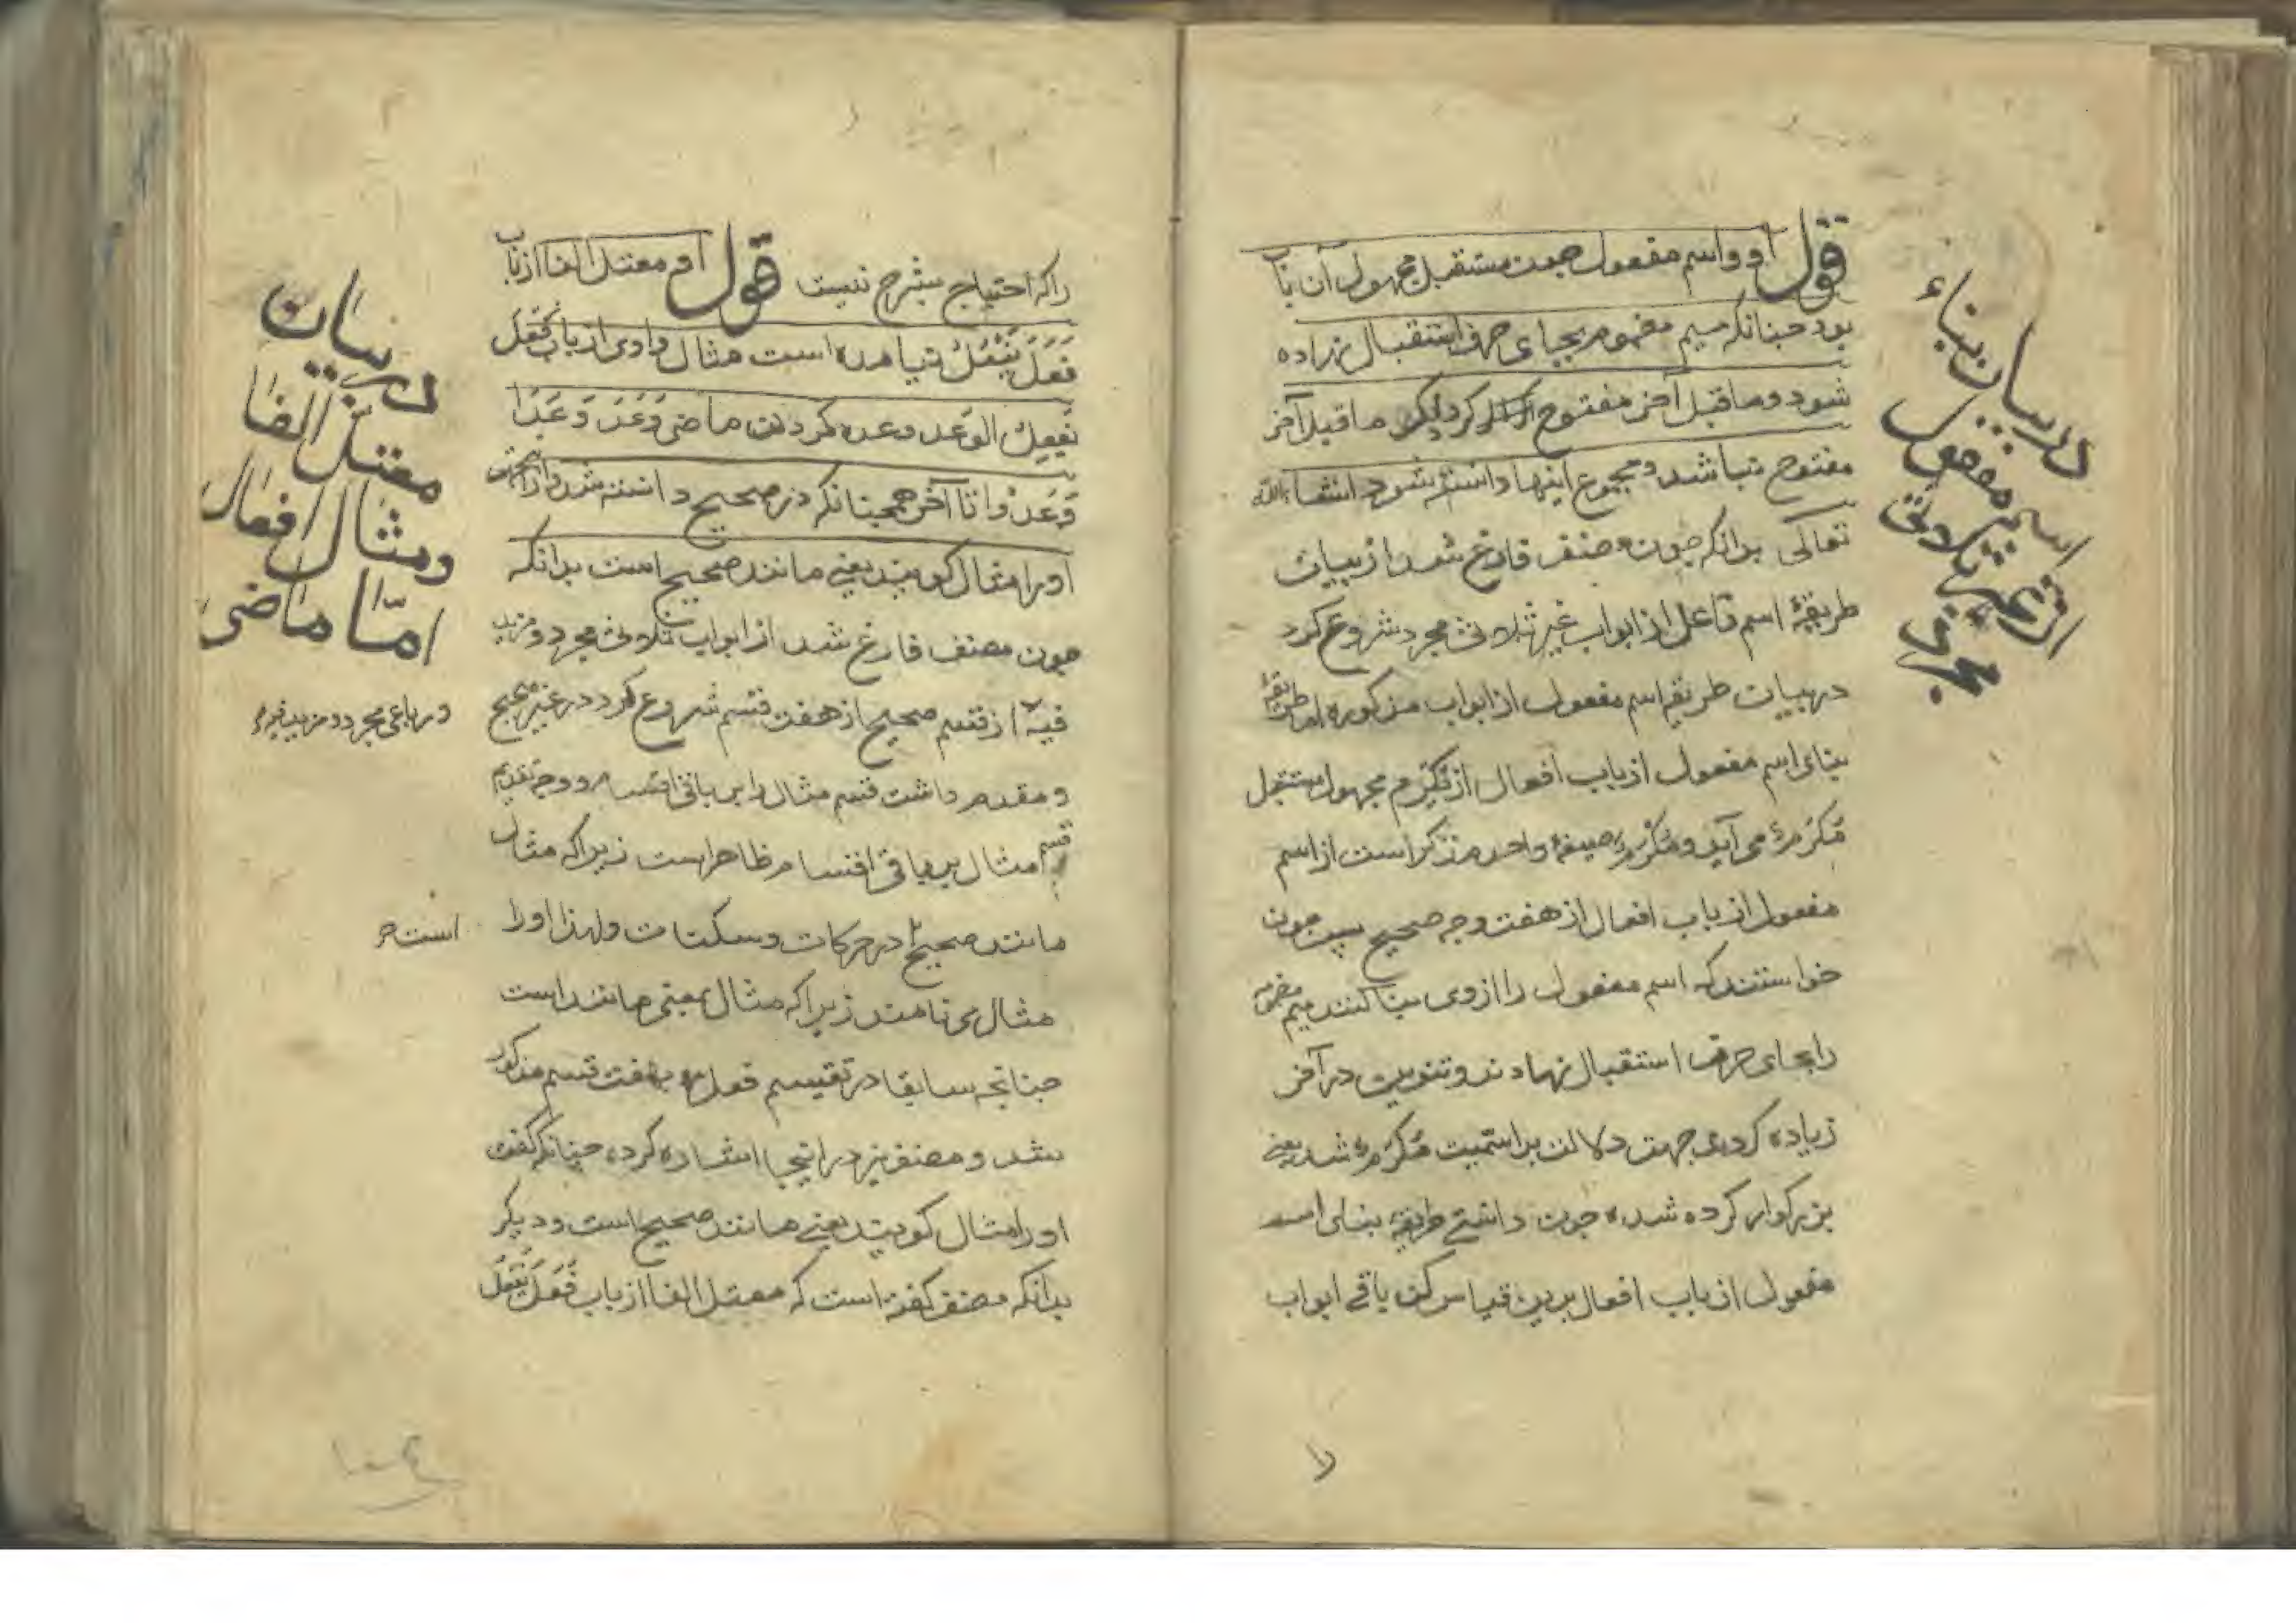 قول او و اسم مفعول چون مستقبل مجهول آن باب
بود چنانکه میم مضموم بجای حرف استقبال نهاده
شود و ما قبل آخر مفتوح کردد لیکن ما قبل آخر
مفتوح باشد و مجموع اینها دانسته شود انشاءالله
تعالی بدانکه چون مصنف فارغ شد از بیان
طریقهٔ اسم فاعل از ابواب غیر ثلاثی مجرد شروع کرد
در بیان طریقه اسم مفعول از ابواب مذکوره اما طریقهٔ
بنای اسم مفعول از باب افعال از تکرم مجهول مستقبل
مُکْرَمٌ می آید و مُکْرَمٌ صیغهٔ واحد مذکر است از اسم
مفعول از باب افعال از هفت وجه صحیح است چون
خواستند که اسم مفعول را از وی بنا کنند میم مضمومه
را بجای حرف استقبال نهادند و تنوین در آخر
زیاده کردند جهت دلالت بر اسمیت مُکْرَمٌ شد یعنی
بزرکوار کرده شده چون دانستی طریقه بنای اسم
مفعول از باب افعال برین قیاس کن باقی ابواب
در بیان بناء
اسم مفعول
از غیر ثلاثی
مجرد
را که احتیاج بشرح نیست قول او معتل الفا از باب
فَعَلَ یَفْعُلُ نیامده است مثال واوی از باب فَعَلَ
یَفْعِلُ الوعد وعده کردن ماضی وَعَدَ وَعَدَا
وَعَدُوا تا آخر همچنانکه در صحیح دانسته شد و ازین جهت
او را مثال کویند یعنی مانند صحیح است بدانکه
چون مصنف فارغ شد از ابواب ثلاثی مجرد و مزید
فیه از قسم صحیح از هفت قسم شروع کرد در غیر صحیح
و مقدم داشت قسم مثال را بر باقی اقسام و وجه تقدیم
قسم مثال بر باقی اقسام ظاهر است زیرا که مثال
مانند صحیح در حرکات و سکنات و لهذا او را
مثال می نامند زیرا که مثال بمعنی مانند است
چنانچه سابقا در تقسیم فعل بهفت قسم مذکور
شد و مصنف نیز در اینجا اشاره کرده چنانکه کفت
او را مثال کویند یعنی مانند صحیح است و دیکر
بدانکه مصنف کفته است که معتل الفا از باب فَعَلَ یَفْعُلُ
در بیان
معتل الفا
و مثال افعال
امّا ماضی
و رباعی مجرد و مزید فیه
است